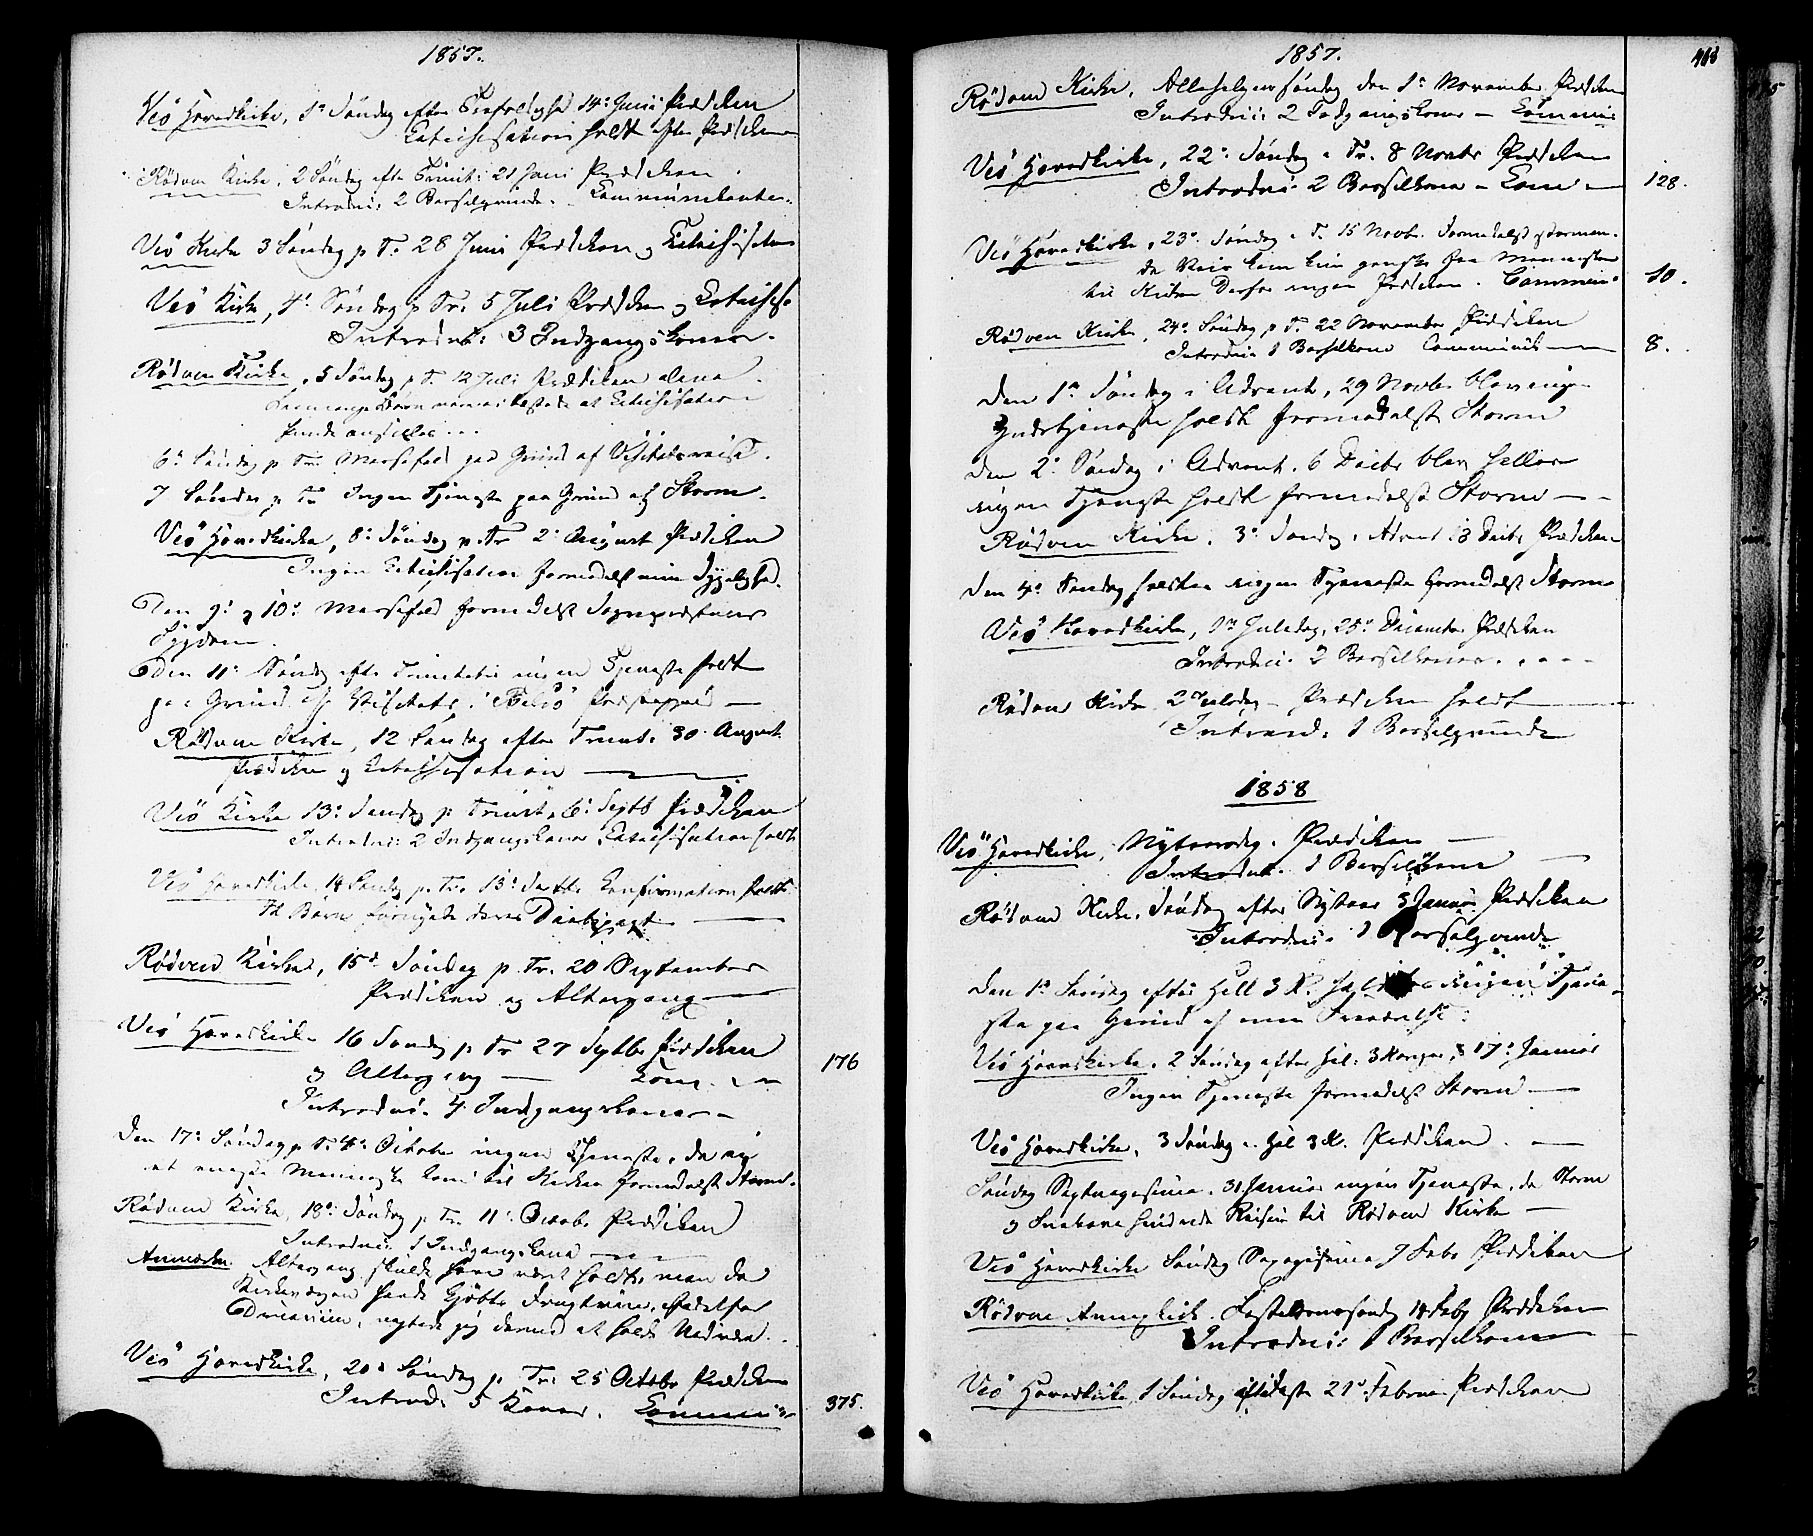 1857.
Veö Hovedkirke, 1e Søndag efter Trefoldighed 14e Juni Prædiken
Catechisation holdt efter Prædiken
Rödven Kirke, 2 Søndag efter Trinit: 21 Juni Prædiken
Introduc: 2 Barselqvinde. Communicanter
Veö Kirke 3 Søndag p Tr. 28 Juni Prædiken og Catechisation
Veö Kirke, 4e Søndag p Tr. 5 Juli Prædiken og Catechis.
Introduct: 3 Indgangskoner.
Rödven Kirke, 5 Søndag p Tr. 12 Juli Prædiken alene
Børn vare tilstede at Catechisation
kunde anstilles
6e Søndag p Tr. Messefald paa Grund af Visitatsreise.
7 Søndag p Tr Ingen Tjeneste paa Grund af Storm.
Veö Hovedkirke, 8e Søndag p. Tr 2e August Prædiken
Ingen Catechisation formedelst min Sygelighed.
Den 9e og 10e Messefald formedelst Sognepræstens
Sygdom.
Den 11e Søndag efter Trinitatis ingen Tjeneste holdt
paa Grund af Visitats i Præstegjeld
Rödven Kirke, 12 Søndag efter Trinit: 30 August
Prædiken og Catechisation
Veö Kirke 13e Søndag p Trinit. 6e Septb Prædiken
Introduc: 2 Indgangskoner Catechisation holdt
Veö Hovedkirke, 14 Søndag p. Tr. 13e Septb Confirmation holdt.
Børn fornyede deres Daabspagt
Rödven Kirke, 15de Søndag p. Tr. 20 September
Prædiken og Altergang
Veö Hovedkirke 16 Søndag p Tr 27 Septbr Prædiken
og Altergang Com. 176
Introduc. 4 Indgangskoner
Den 17e Søndag p Tr. 4de Octobr ingen Tjeneste, da ei
et eneste Menneske kom til Kirken formedelst Storm.
Rödven Kirke, 18e Søndag p Tr. 11e Octobr Prædiken
Introduc: 1 Indgangskone
Anmærkn. Altergang skulde have været holdt, men da
Kirkeværgen havde Kjöbt Frugtviin, istedetfor
Drueviin, nægtede jeg dermed at holde Nadveren.
Veö Hovedkirke, 20e Søndag p Tr. 25 Octobr Prædiken
Introd. 5 Koner. Commun: 375.
1857.
Rödven Kirke, Allehelgensøndag den 1e November Prædiken
Introduc: 2 Indgangskoner - Commun
Veö Hovedkirke, 22e Søndag e Tr. 8 Novbr Prædiken
Introduc. 2 Barselkoner - Com 128.
Veö Hovedkirke, 23e Søndag e Tr. 15 Novbr. Formedelst stormen-
de Veir kom kun ganske faa Mennesker
til Kirken Derfor ingen Prædiken. Commun: 10.
Rödven Kirke, 24e Søndag p Tr. 22 November Prædiken
Introduc 1 Barselkone Communic 8.
Den 1e Søndag i Advent, 29 Novbr blev ingen
Gudstjeneste holdt formedelst Storm
Den 2e Søndag i Advent. 6 Decbr blev heller
ingen Tjeneste holdt formedelst Storm
Rödven Kirke. 3e Søndag i Advent 13 Decbr Prædiken
Den 4e Søndag holdtes ingen Tjeneste formedelst Storm
Veö Hovedkirke, 1ste Juledag, 25e December Prædiken
Introduc: 2 Barselkoner
Rödven Kirke 2 Juledag - Prædiken holdt
Introd: 1 Barselqvinde
1858
Veö Hovedkirke, Nytaarsdag. Prædiken
Introduct. 1 Barselkone
Rödven Kirke. Søndag efter Nytaar 3 Januar Prædiken
Introduc. 1 Barselqvinde
Den 1e Søndag efter Hell 3 K. holdtes ingen Tjene-
ste paa Grund af min Fraværelse.
Veö Hovedkirke. 2 Søndag efter Hel: 3 Konger, 17e Januar
Ingen Tjeneste formedelst Storm
Veö Hovedkirke, 3 Søndag e. Hel 3 K. Prædiken
Søndag Septuagesima. 31 Januar ingen Tjeneste, da Storm
og Snekave hindrede Reisen til Rödven Kirke
Veö Hovedkirke Søndag Sexagesima 7 Febr Prædiken
Rödven Annexkirk. Fastelavnssøndag 14 Febr Prædiken
Introduc: 1 Barselkone
Veö Hovedkirke 1 Søndag i Faste 21e Februar Prædiken